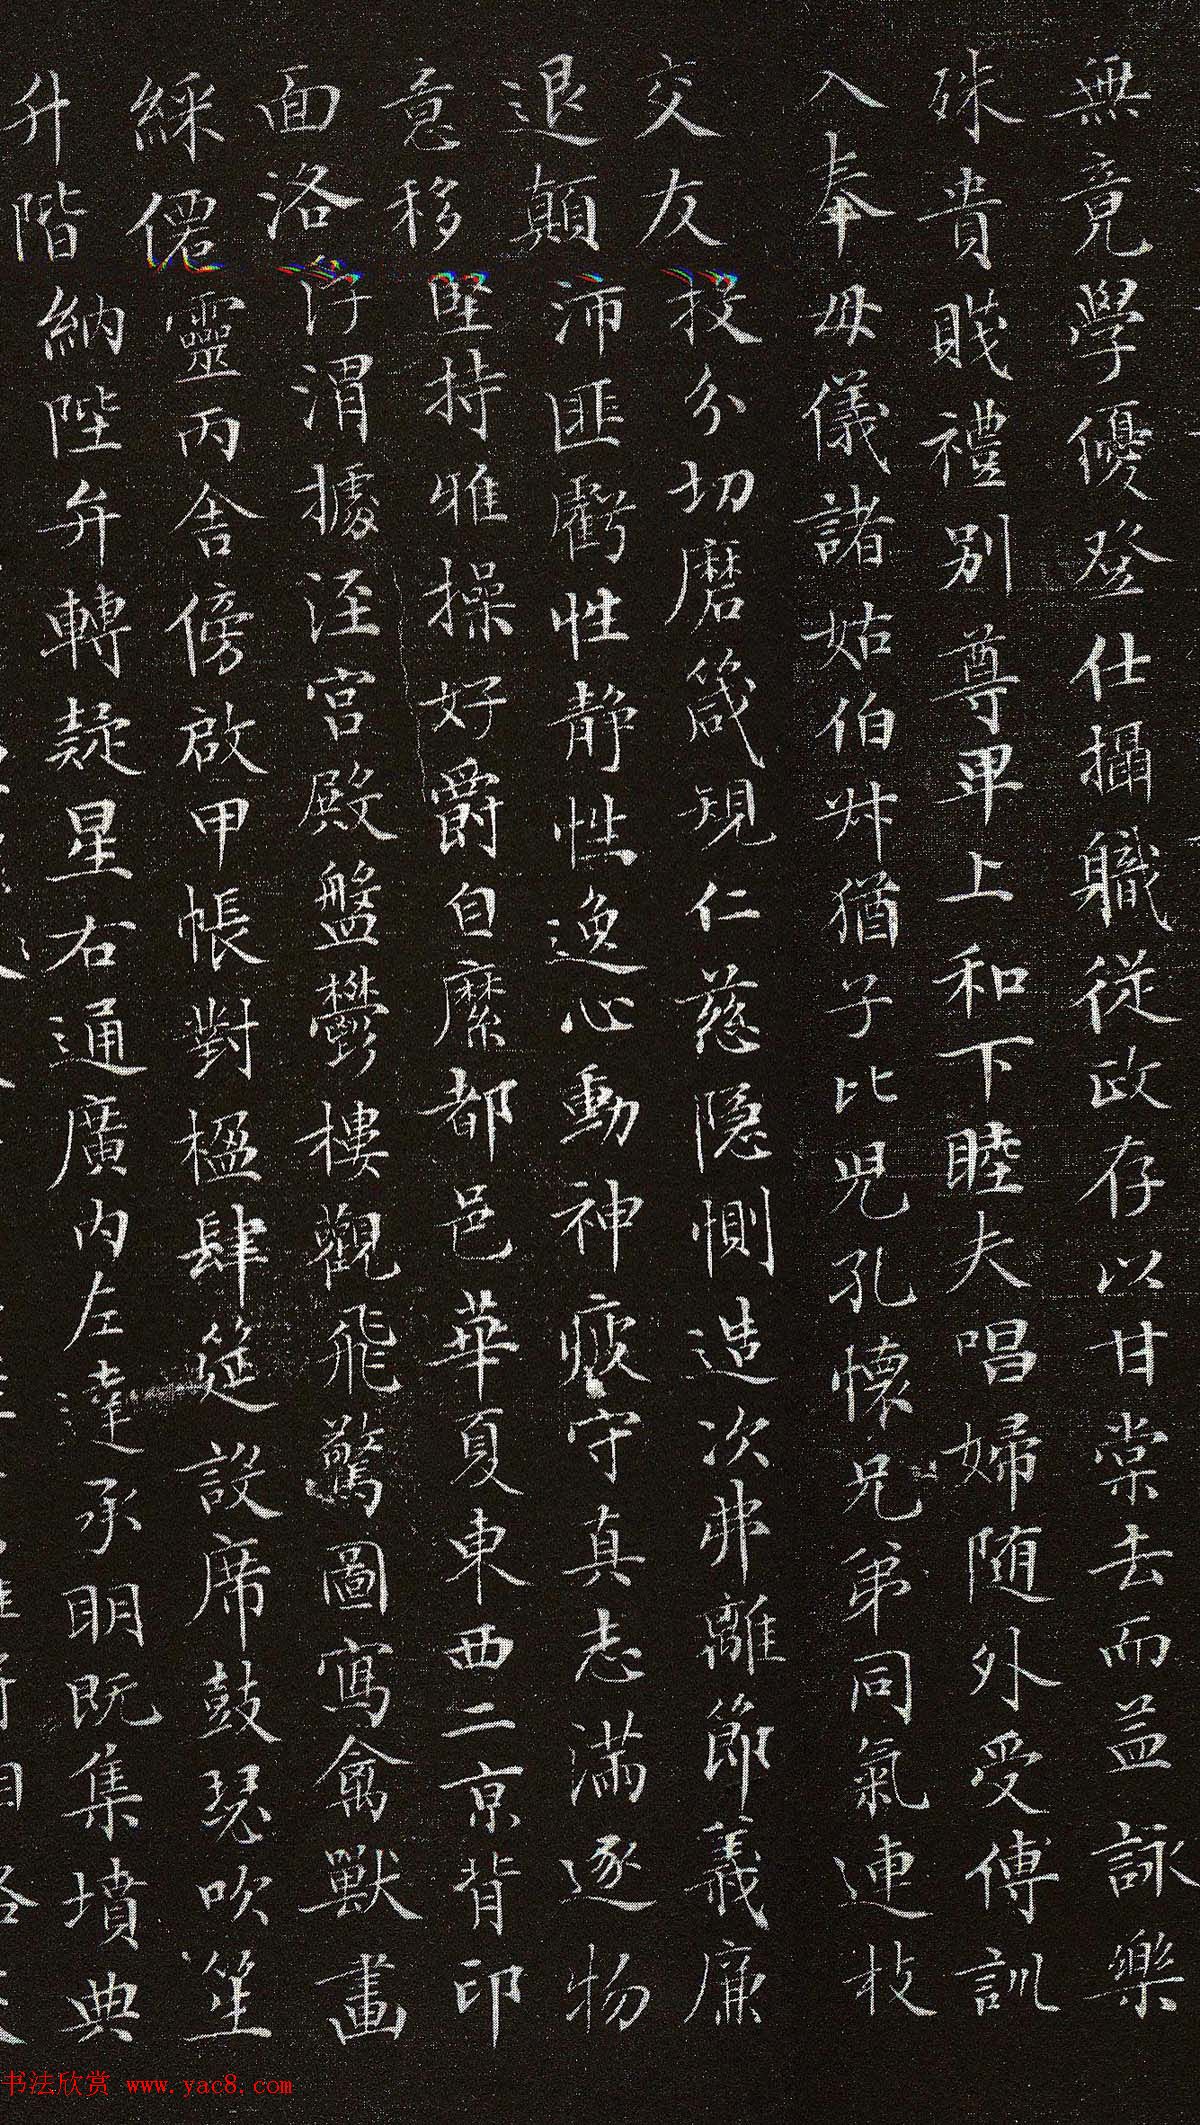 無竟學優登仕攝職從政存以甘棠去而益詠樂
殊貴賤禮別尊卑上和下睦夫唱婦隨外受傅訓
入奉母儀諸姑伯叔猶子比兒孔懷兄弟同氣連枝
交友投分切磨箴規仁慈隱惻造次弗離節義廉
退顛沛匪虧性靜性逸心動神疲守真志滿逐物
意移堅持雅操好爵自縻都邑華夏東西二京背邙
面洛浮渭據涇宮殿盤鬱樓觀飛驚圖寫禽獸畫
綵僊靈丙舍傍啟甲帳對楹肆筵設席鼓瑟吹笙
升階納陛弁轉疑星右通廣內左達承明既集墳典
书法欣赏 www.yac8.com